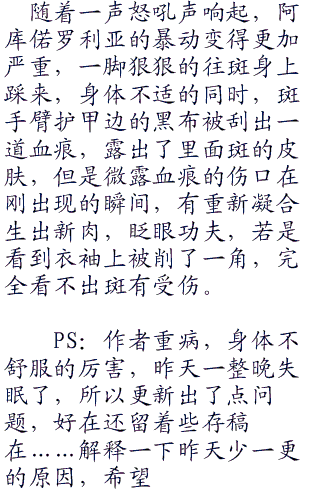 随着一声怒吼声响起，阿
库偌罗利亚的暴动变得更加
严重，一脚狠狠的往斑身上
踩来，身体不适的同时，斑
手臂护甲边的黑布被刮出一
道血痕，露出了里面斑的皮
肤，但是微露血痕的伤口在
刚出现的瞬间，有重新凝合
生出新肉，眨眼功夫，若是
看到衣袖上被削了一角，完
全看不出斑有受伤。
PS：作者重病，身体不
舒服的厉害，昨天一整晚失
眠了，所以更新出了点问
题，好在还留着些存稿
在……解释一下昨天少一更
的原因，希望